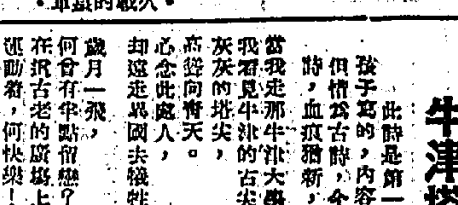 牛津塔
此詩是第一
孩子寫的,內容
但惜爲古詩,今
時,血痕猶新,
當我走那牛津大學
我看見牛津的古尖
灰灰的塔尖,
高聳向青天。
心念此處人,
却遠走異國去犧牲
歲月一飛,
何曾有半點留戀?
在古老的廣場上
運動着,何快樂!